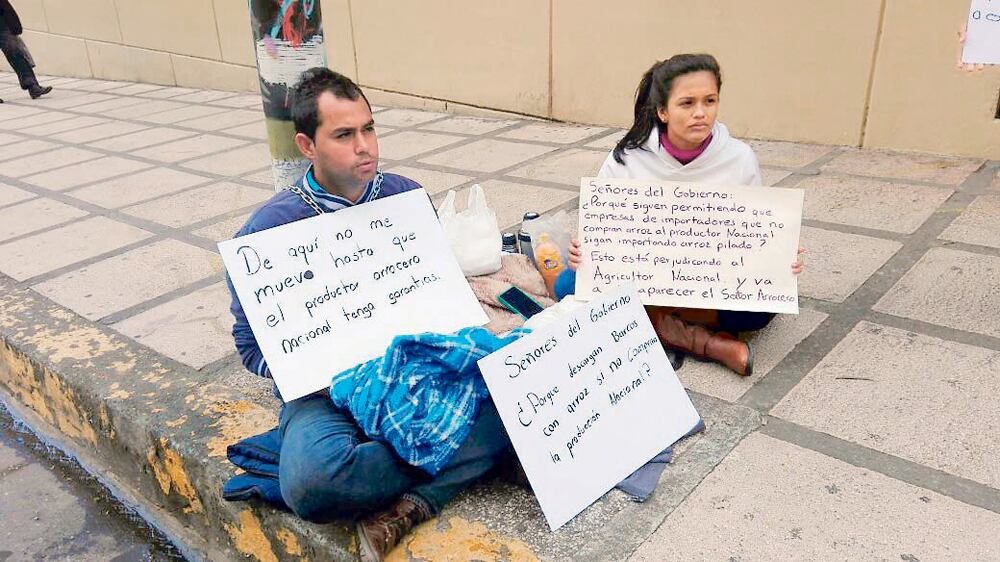 De aquí no me
muevo hasta que
el productor arrocero
nacional tenga garantias.
Señores del Gobierno:
¿Porqué siguen permitiendo que
empresas de importadores que no
compran arroz al productor Nacional
sigan importando arroz pilado?
Esto está perjudicando al
Agricultor Nacional y va
a aparecer el Sector Arrocero
Señores del Gobierno
¿Porque descargan Barcos
con arroz si no compran
la producción Nacional?